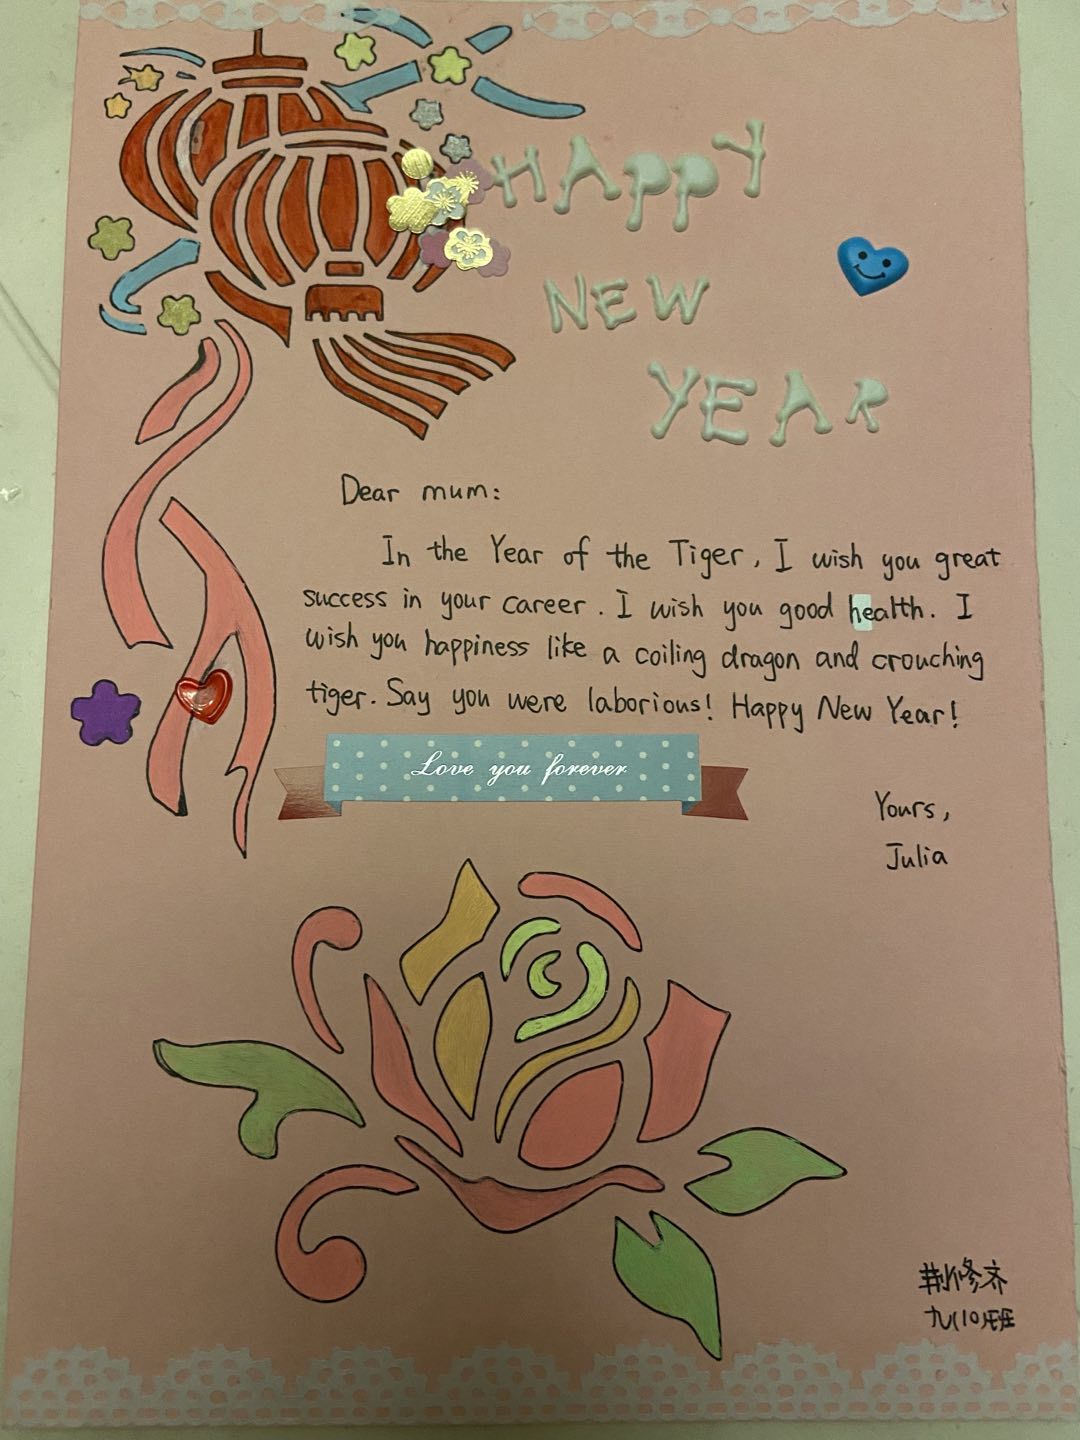 HAPPY
NEW
YEAR
Dear mum:
In the Year of the Tiger, I wish you great
success in your career. I wish you good health. I
wish you happiness like a coiling dragon and crouching
tiger. Say you were laborious! Happy New Year!
Love you forever
Yours,
Julia
荆修齐
九(10)班